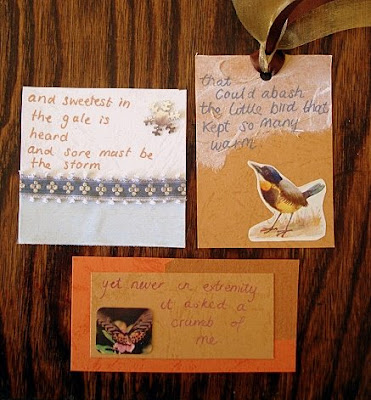 and sweetest in
the gale is
heard
and sore must be
the storm
that
could abash
the little bird that
kept so many
warm
yet never in extremity
it asked a
crumb of
me